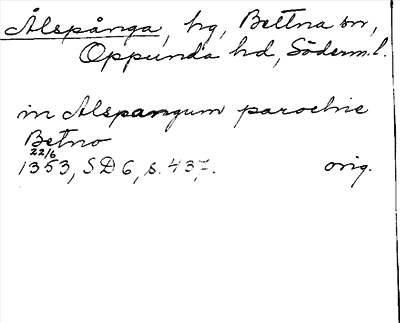 Ålspånga, hg, Bettna sn,
Oppunda hd, Söderm.l.
in Alspangum parochie
Betno
22/6
1353, SD 6, s. 437.
orig.